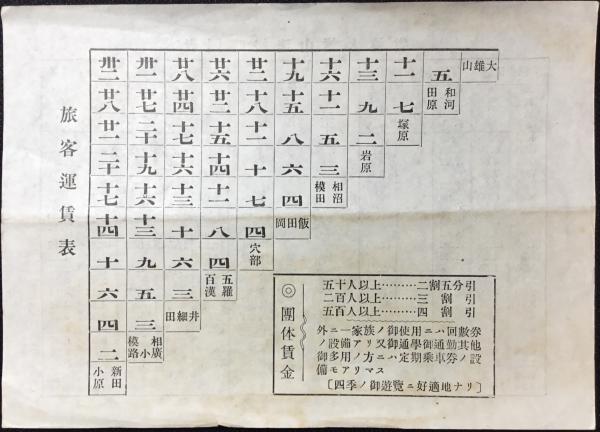 旅客運賃表
大雄山 五 十一 十三 十六 十九 廿二 廿六 廿八 卅一 卅二
和田河原 七 九 十一 十五 十八 廿二 廿四 廿七 廿八
塚原 二 五 八 十一 十五 十七 二十 廿一
岩原 三 六 十 十四 十六 十九 二十
相模沼田 四 七 十一 十三 十六 十七
飯田岡 四 八 十 十三 十四
穴部 四 六 九 十
五百羅漢 三 五 六
井細田 三 四
相模廣小路 二
新小田原
◎團体賃金
五十人以上………二割五分引
二百人以上………三割引
五百人以上………四割引
外ニ一家族ノ御使用ニハ回數券
ノ設備アリ又御通學御通勤其他
御多用ノ方ニハ定期乗車券ノ設
備モアリマス
〔四季ノ御遊覽ニ好適地ナリ〕